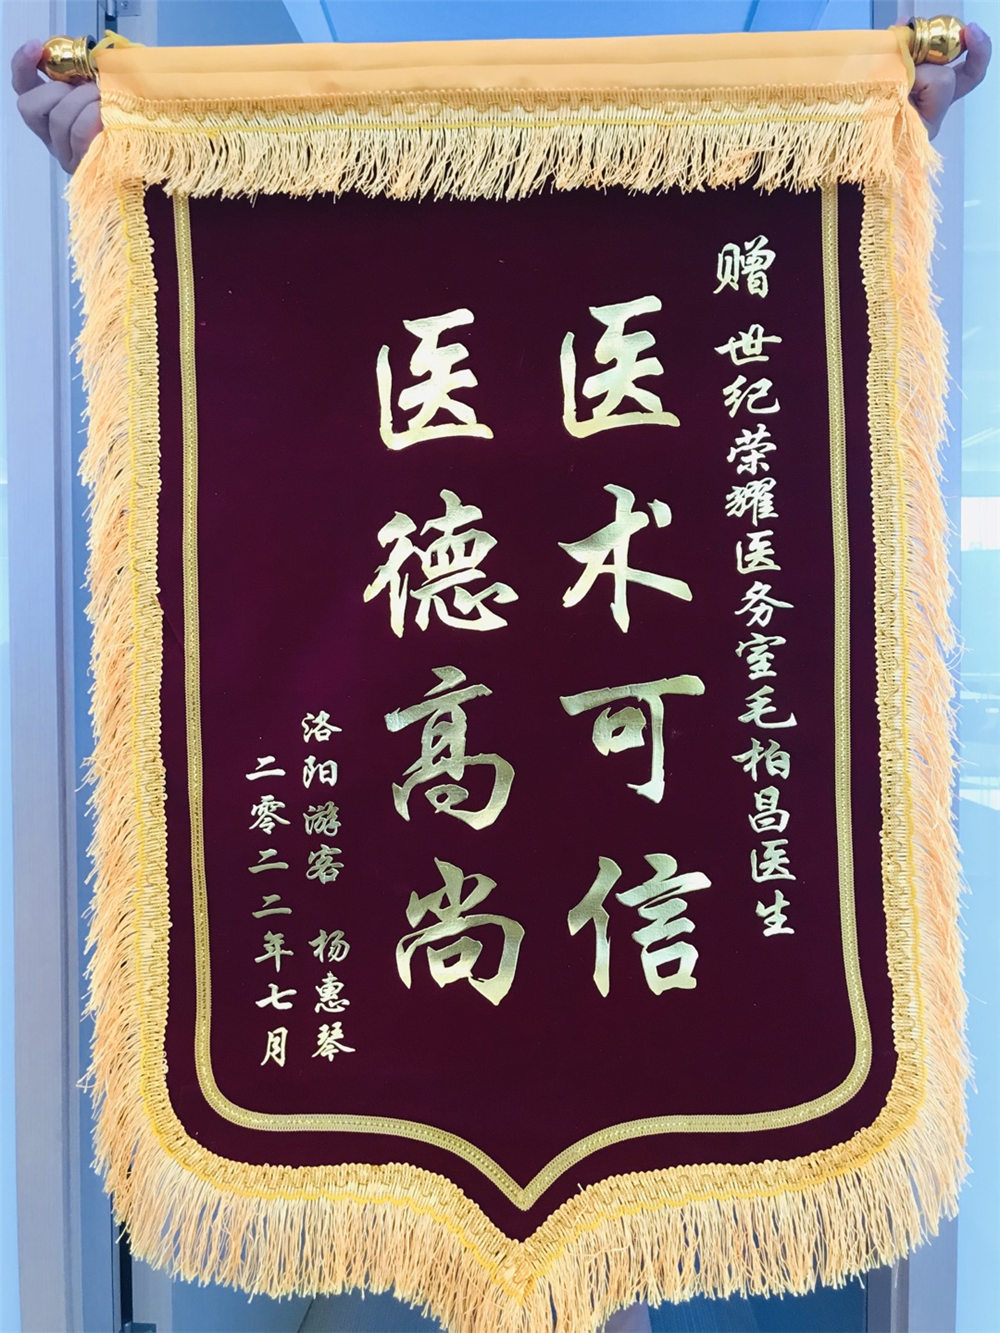 赠 世纪荣耀医务室毛柏昌医生
医术可信
医德高尚
洛阳游客 杨惠琴
二零二二年七月